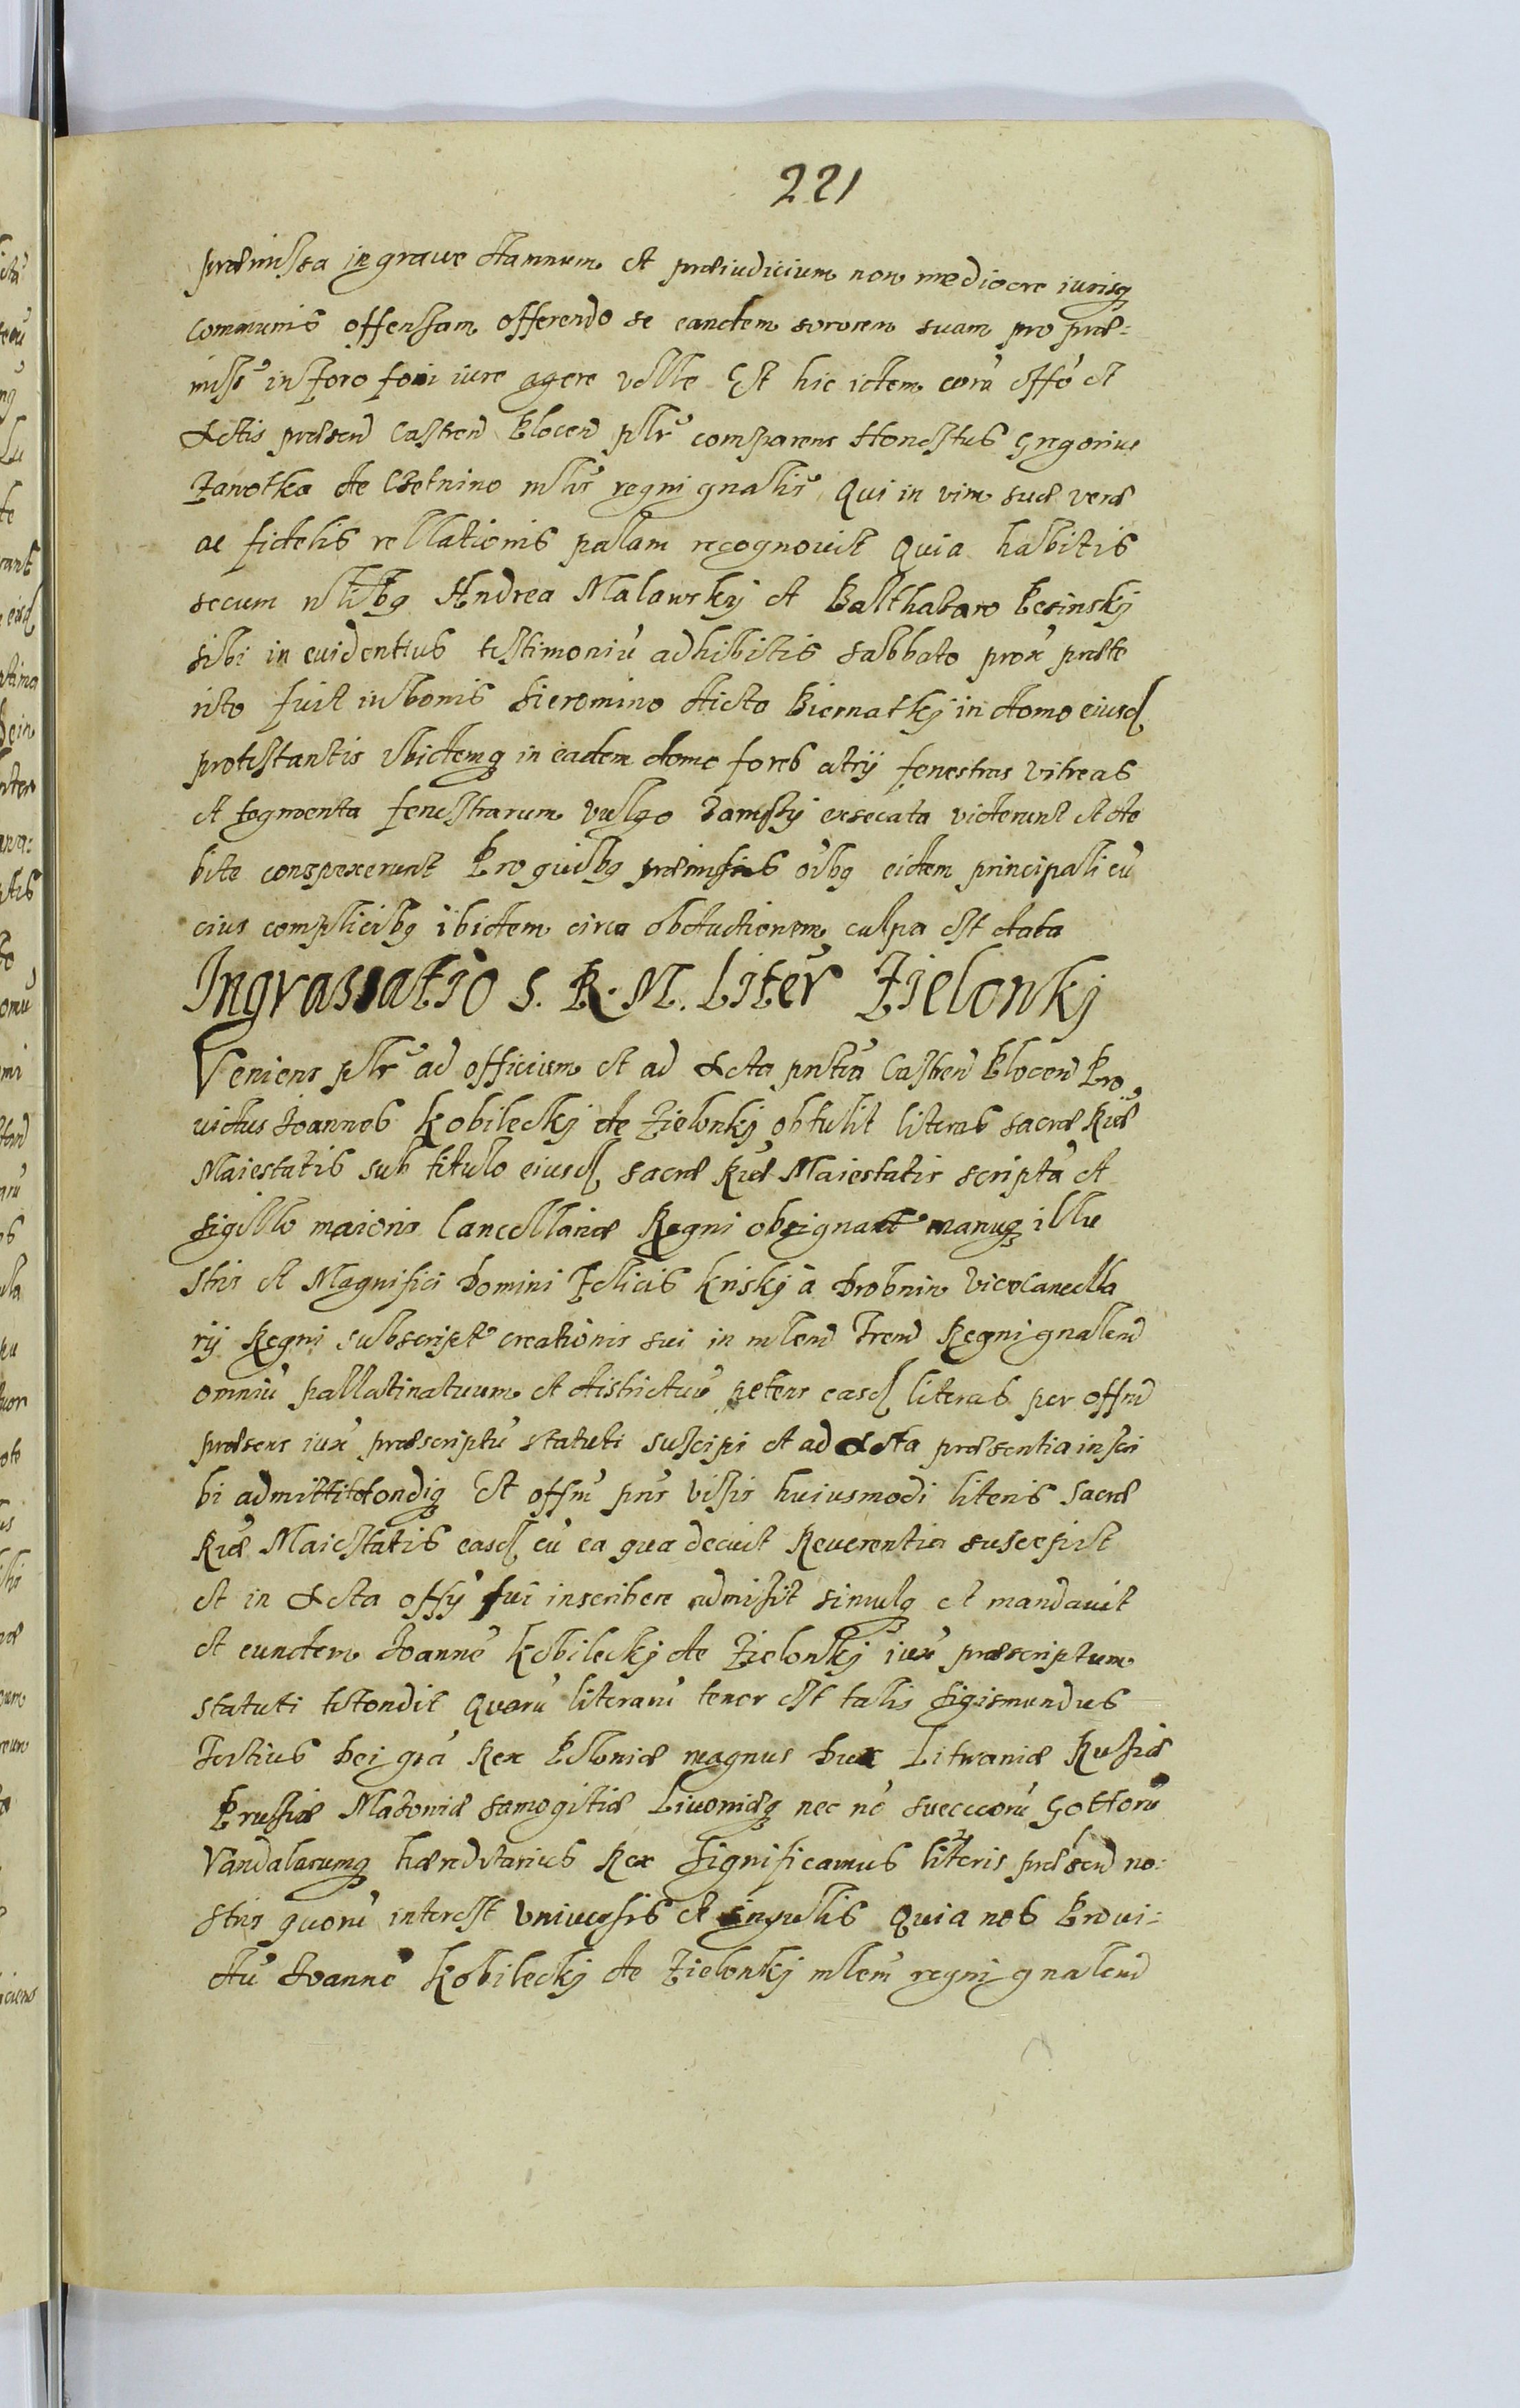 221
præmissa in grave damnum et præiudicium non mediocre iurisq
communis offensam offerendo se eandem sororem suam pro præ=
miss in foro fori iure agere velle Et hic idem corā offo et
Actis præsen Castren Plocen plr comparens Honestus Gregorius
Janotka de Czetnino mlis regni gnalis Qui in vim suæ veræ
ac fidelis rellationis palam recognovit Quia habitis
secum nlibq Andrea Malawskij et Balthazaro
sibi in evidentius testimoniū adhibitis Sabbato prox præte
rito fuit in bonis Sieromino dicto Biernatkij in domo eiusd
protestantis Ibidemq in eadem domo fores atrij fenestras vitreas
et fragmenta fenestrarum vulgo exsecata viderunt et de
bite conspexerunt Pro quibq præmissis oībq eidem principali cū
eius complicibq ibidem circa obductionem culpa est data
Ingrassatio S. R. M. Liter Zielonkj
Veniens plr ad officium et ad Acta pntia Castren Plocen Pro
vidus Joannes Kobileckj de Zielonkj obtulit literas sacræ Riæ
Maiestatis sub titulo eiusd sacræ Riæ Maiestatis scripta et
sigillo maioris Cancellariæ Regni obsignat manuq illu
stris et Magnifici Domini Felicis Kriskj à Drobnin Vicecancella
rij Regni subscript creationis sui in mlem Tren Regni gnalem
omniū pallatinatuum et districtuū petens easd literas per offm
præsens iux præscriptū statuti suscipi et ad Acta præsentia inscri
bi admitti tondiq Et offm pns visis huiusmodi literis Sacræ
Riæ Maiestatis easd cū ea qua decuit Reverentia suscepit
et in Acta offy sui inscribere admisit simulq et mandavit
et eundem Joannē Kobileckj de Zielonkj iux præscriptum
statuti totondit Quarū literarū tenor est talis Sigismundus
Tertius Dei grā Rex Poloniæ magnus Dux Litwaniæ Russiæ
Prussiæ Mazoviæ Samogitiæ Livoniæq nec nō Sueccorū Gottorū
Vandalarumq hæreditarius Rex Significamus literis præsen no:
stris quorū interest universis et singulis Quia nos Provi=
dū Joannē Kobileckj de Zielonkj mlem regni gnalem